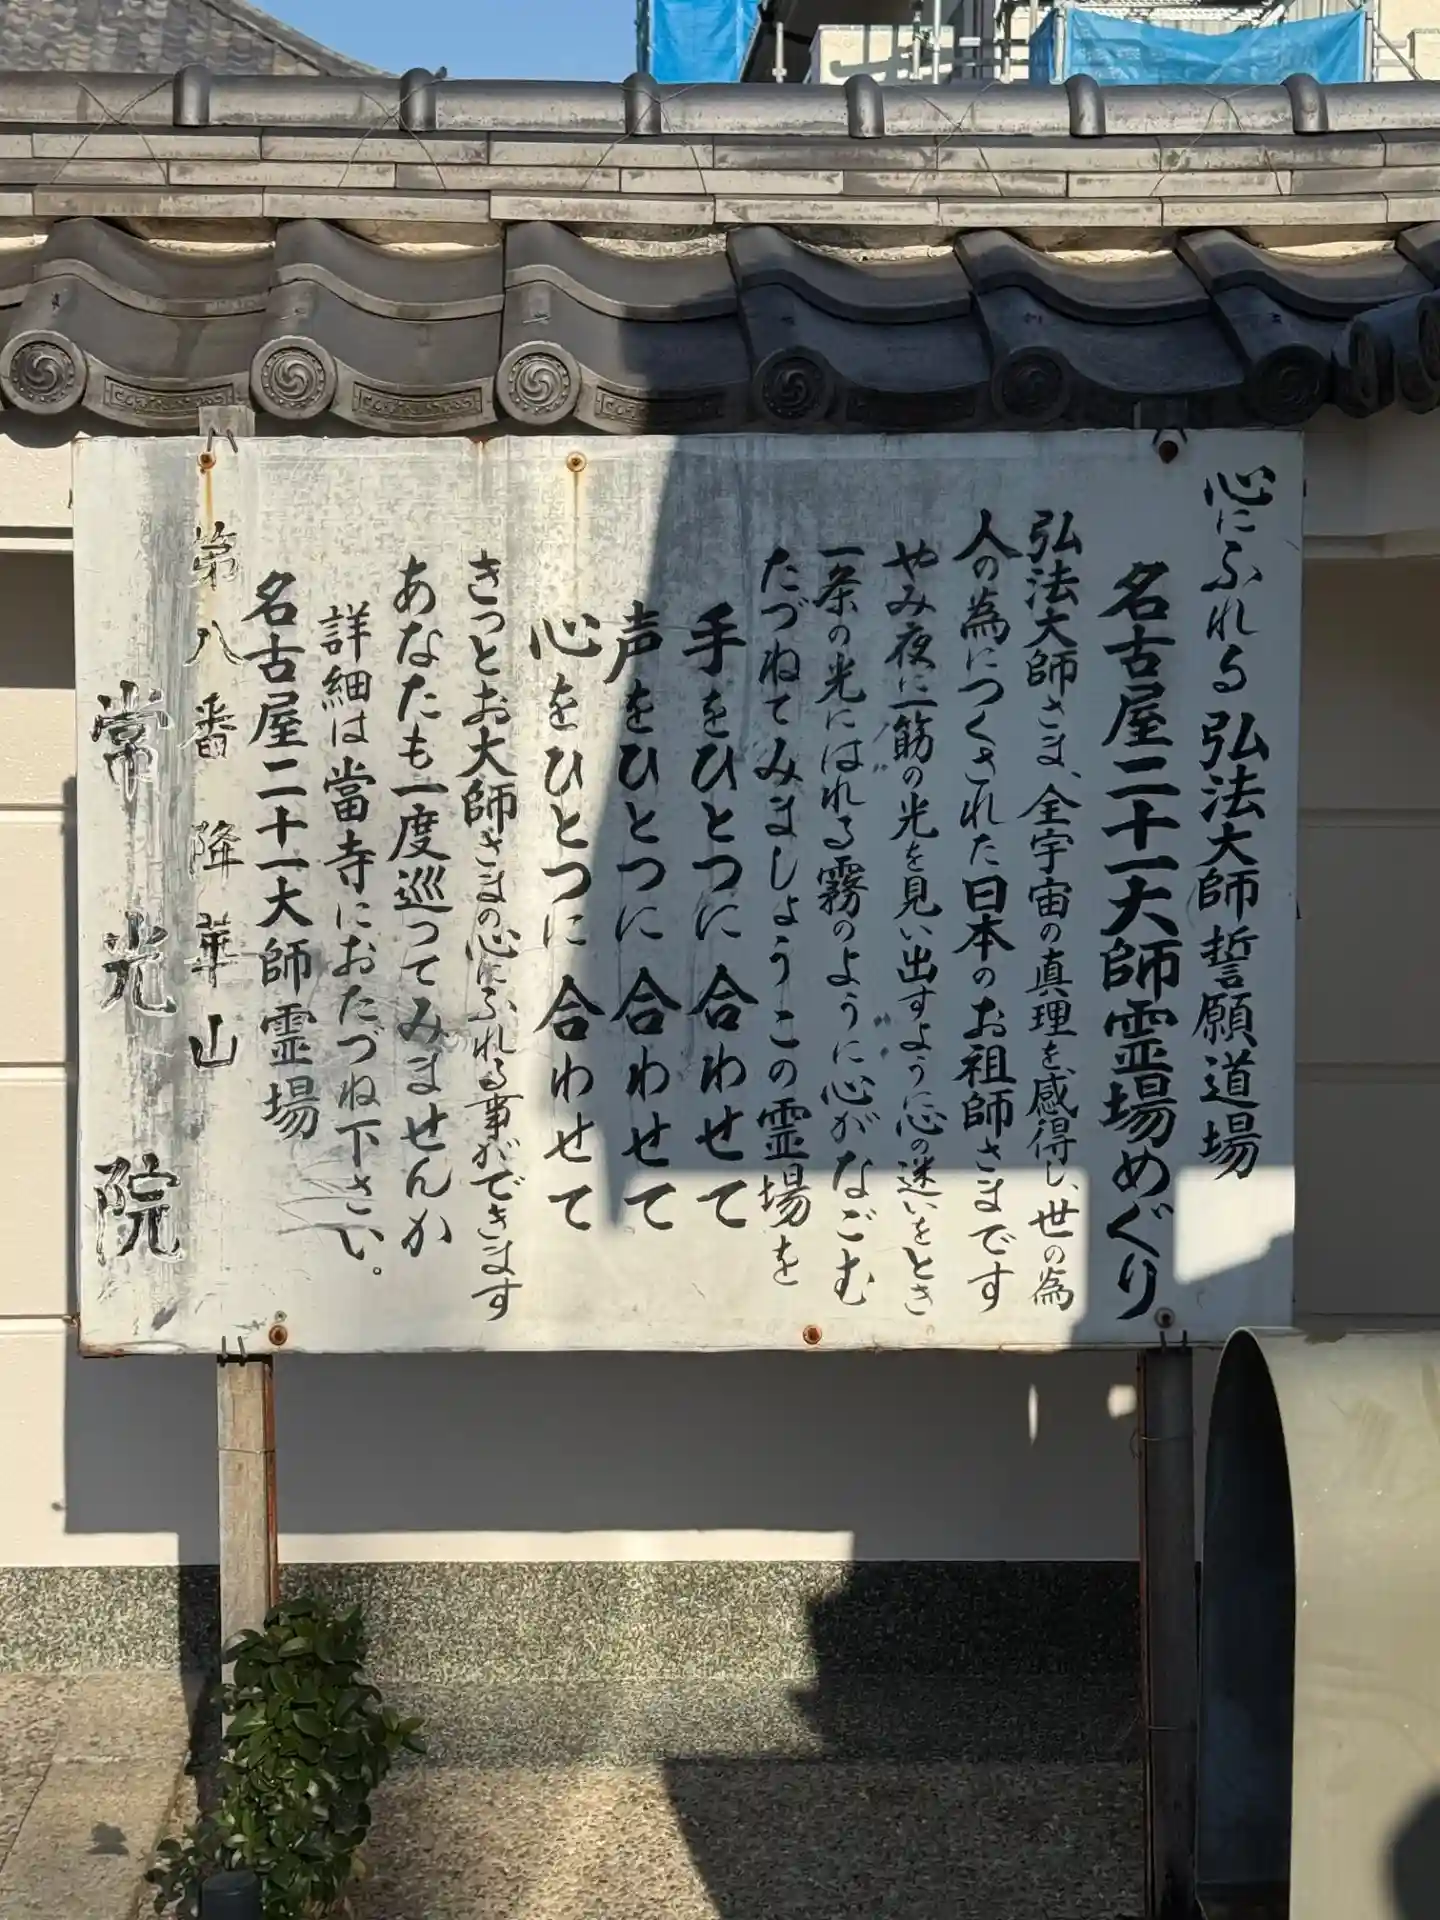 心にふれる弘法大師誓願道場
名古屋二十一大師霊場めぐり
弘法大師さま、全宇宙の真理を感得し、世の為
人の為につくされた日本のお祖師さまです
やみ夜に一筋の光を見い出すように心の迷いをとき
一条の光にはれる霧のように心がなごむ
たづねてみましようこの霊場を
手をひとつに合わせて
声をひとつに合わせて
心をひとつに合わせて
きっとお大師さまの心にふれる事ができます
あなたも一度巡ってみませんか
詳細は當寺におたづね下さい。
名古屋二十一大師霊場
第八番降華山
常光院